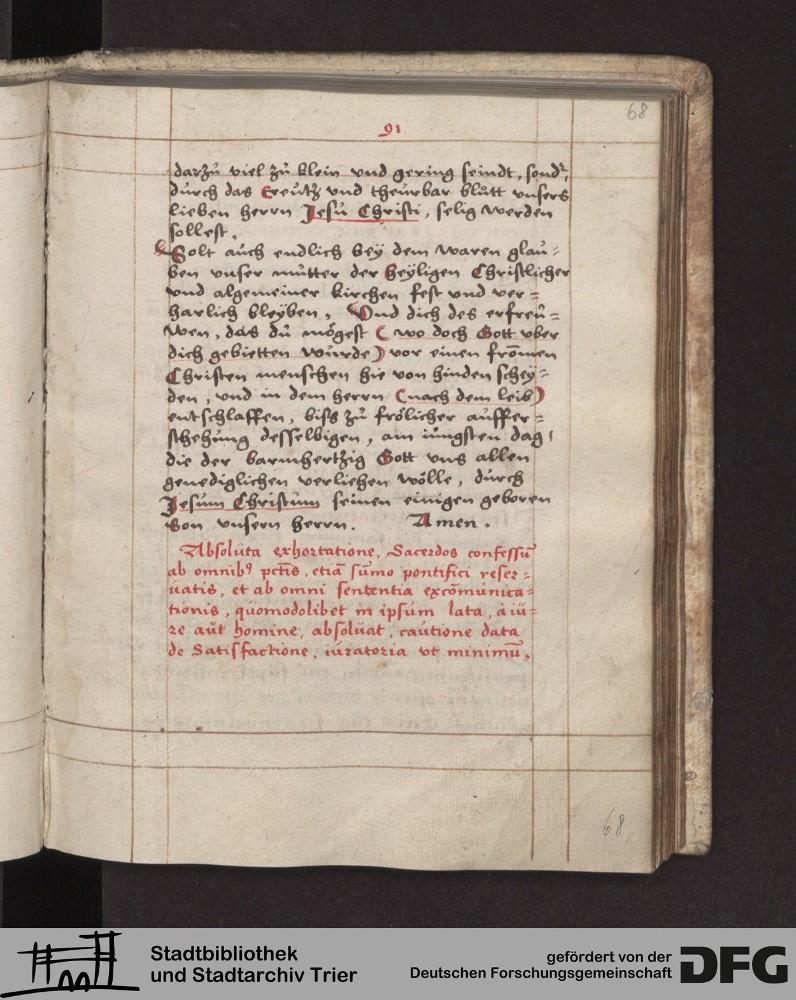 68
91
darzů viel zů klein vnd gering seindt, sondr̃,
durch das Creutz vnd theurbar blůtt vnsers
lieben herrn Jesu Christi, selig werden
sollest.
Solt auch endlich bey dem waren glau-
ben vnser můtter der heyligen Christlicher
vnd algemeiner kirchen fest vnd ver-
harlich bleyben. Vnd dich des erfreu-
wen, das du mögest (wo doch Gott vber
dich gebietten wurde) vor einen from̄en
Christen menschen hie von hinden schey-
den, vnd in dem herrn (nach dem leib)
entschlaffen, biss zů frölicher auffer-
stehung desselbigen, am iungsten dag,
die der barmhertzig Gott vns allen
genediglichen verliehen wölle, durch
Jesum Christum seinen einigen geboren
Son vnsern herrn. Amen.
Absoluta exhortatione, Sacerdos confessũ
ab omnibꝰ pctīs, etiā sum̄o pontifici reser-
uatis, et ab omni sententia excōmunica-
tionis, quomodolibet in ipsum lata, à iu-
re aut homine, absoluat, cautione data
de Satisfactione, iuratoria vt minimũ.
68
Stadtbibliothek
und Stadtarchiv Trier
gefördert von der
Deutschen Forschungsgemeinschaft
DFG